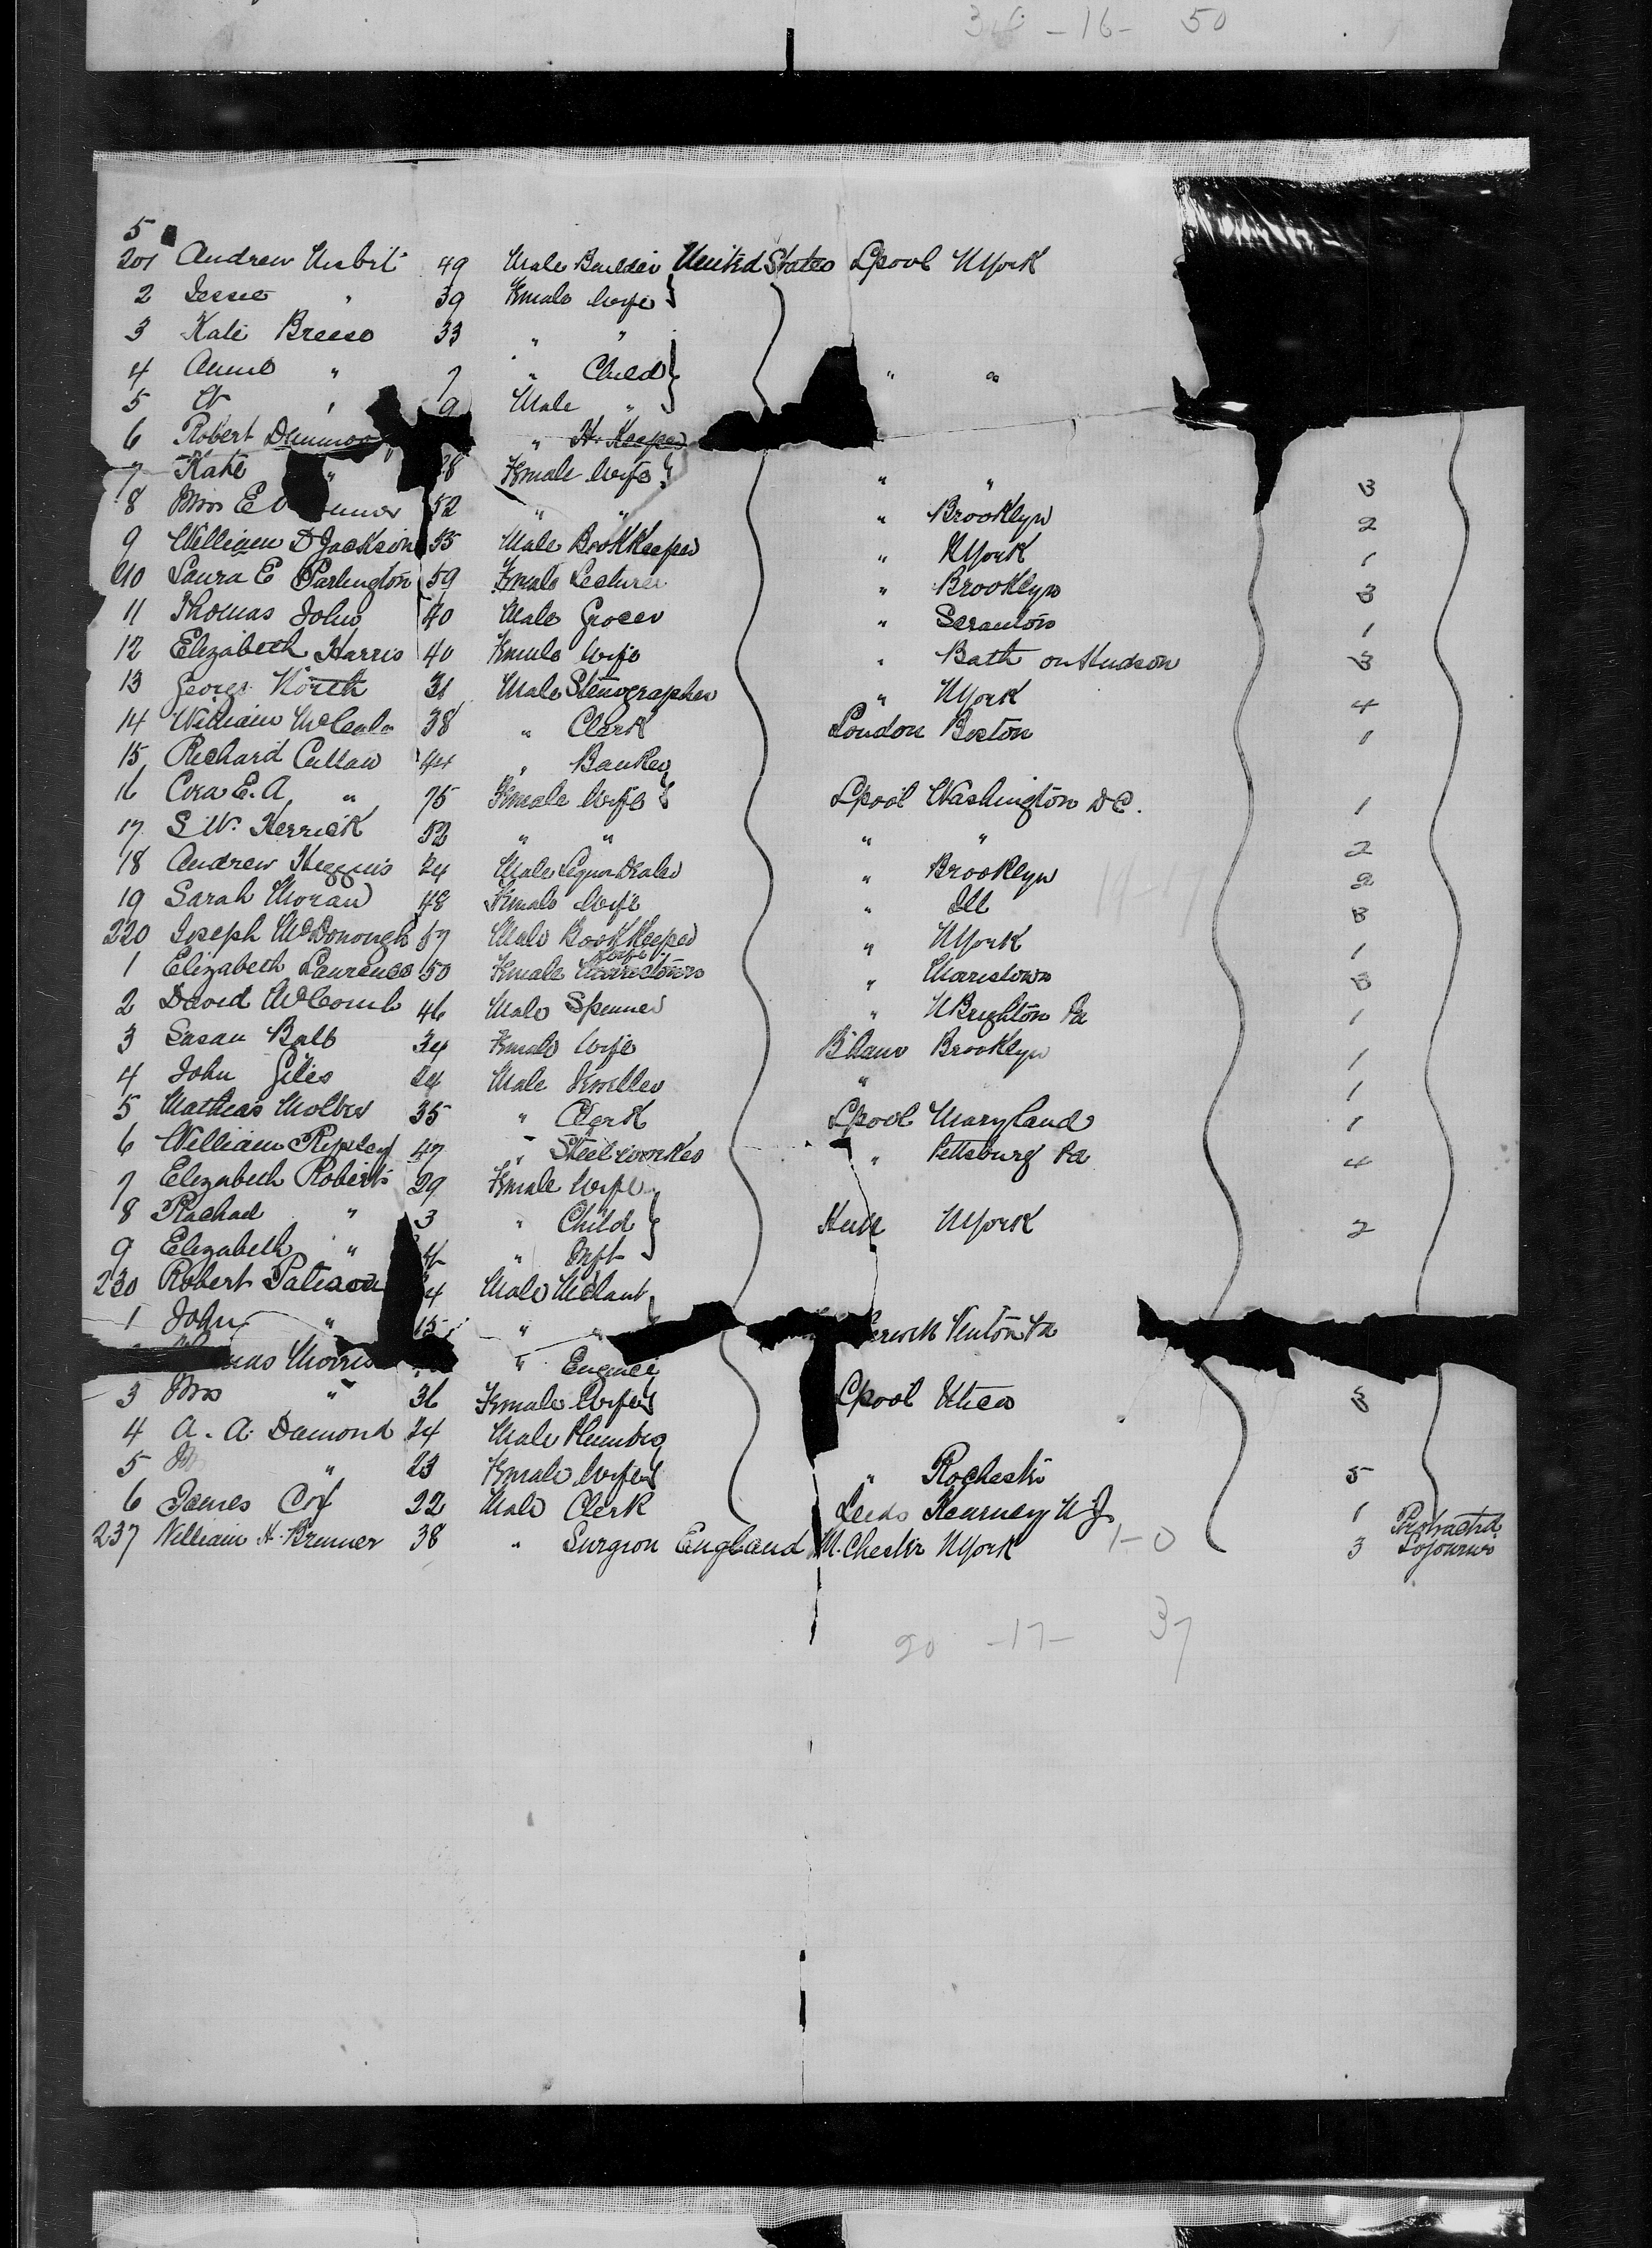 36 - 16 - 50
5
201 Andrew Nisbit 49 Male Builder United States Lpool NYork
2 Jessie " 39 Female Wife
3 Kate Breese 33 " "
4 Annie " 7 " Child " "
5 W " 9 Male "
6 Robert " H. Keeper
7 Kate " 28 Female Wife " " 3
8 Mrs E 52 " " " Brooklyn 2
9 William D Jackson 55 Male BookKeeper " NYork 1
210 Laura E Partington 59 Female Lecturer " Brooklyn 3
11 Thomas John 40 Male Grocer " Scranton 1
12 Elizabeth Harris 40 Female Wife " Bath on Hudson 3
13 George North 31 Male Stenographer " NYork 4
14 William 38 " Clerk London Boston 1
15 Richard Cullaw 44 " Banker
16 Cora E. A " Female Wife Lpool Washington DC. 1
17 S W. Herrick 52 " " " " 2
18 Andrew Higgins 24 Male Liquor Dealer " Brooklyn 2
19 Sarah Moran 48 Female Wife " Ill 3
220 Joseph McDonough 57 Male BookKeeper " NYork 1
1 Elizabeth Laurence 50 Female Wife " Morristown 3
2 David McComb 46 Male Spinner " NBrighton Pa 1
3 Susan Balb 34 Female Wife B'ham Brooklyn 1
4 John Giles 24 Male Jeweller " 1
5 Mathias Molter 35 " Clerk Lpool Maryland 1
6 William Ripley 47 " Steelworker " Pittsburg Pa 4
7 Elizabeth Roberts 29 Female Wife
8 Rachael " 3 " Child Hull NYork 2
9 Elizabeth " " Inft
230 Robert Patieson 4 Male Mchant
1 John " 15 " "
Morris " Engineer
3 Mrs " 36 Female Wife Lpool Utica 3
4 A. A. Damond 24 Male Plumber
5 " 23 Female Wife " Rochester 5
6 James Cox 22 Male Clerk Leeds Kearney N J. 1
237 William H. Brunner 38 " Surgeon England M.Chester NYork 1-0 3 Protracted Sojourn
20 - 17 - 37